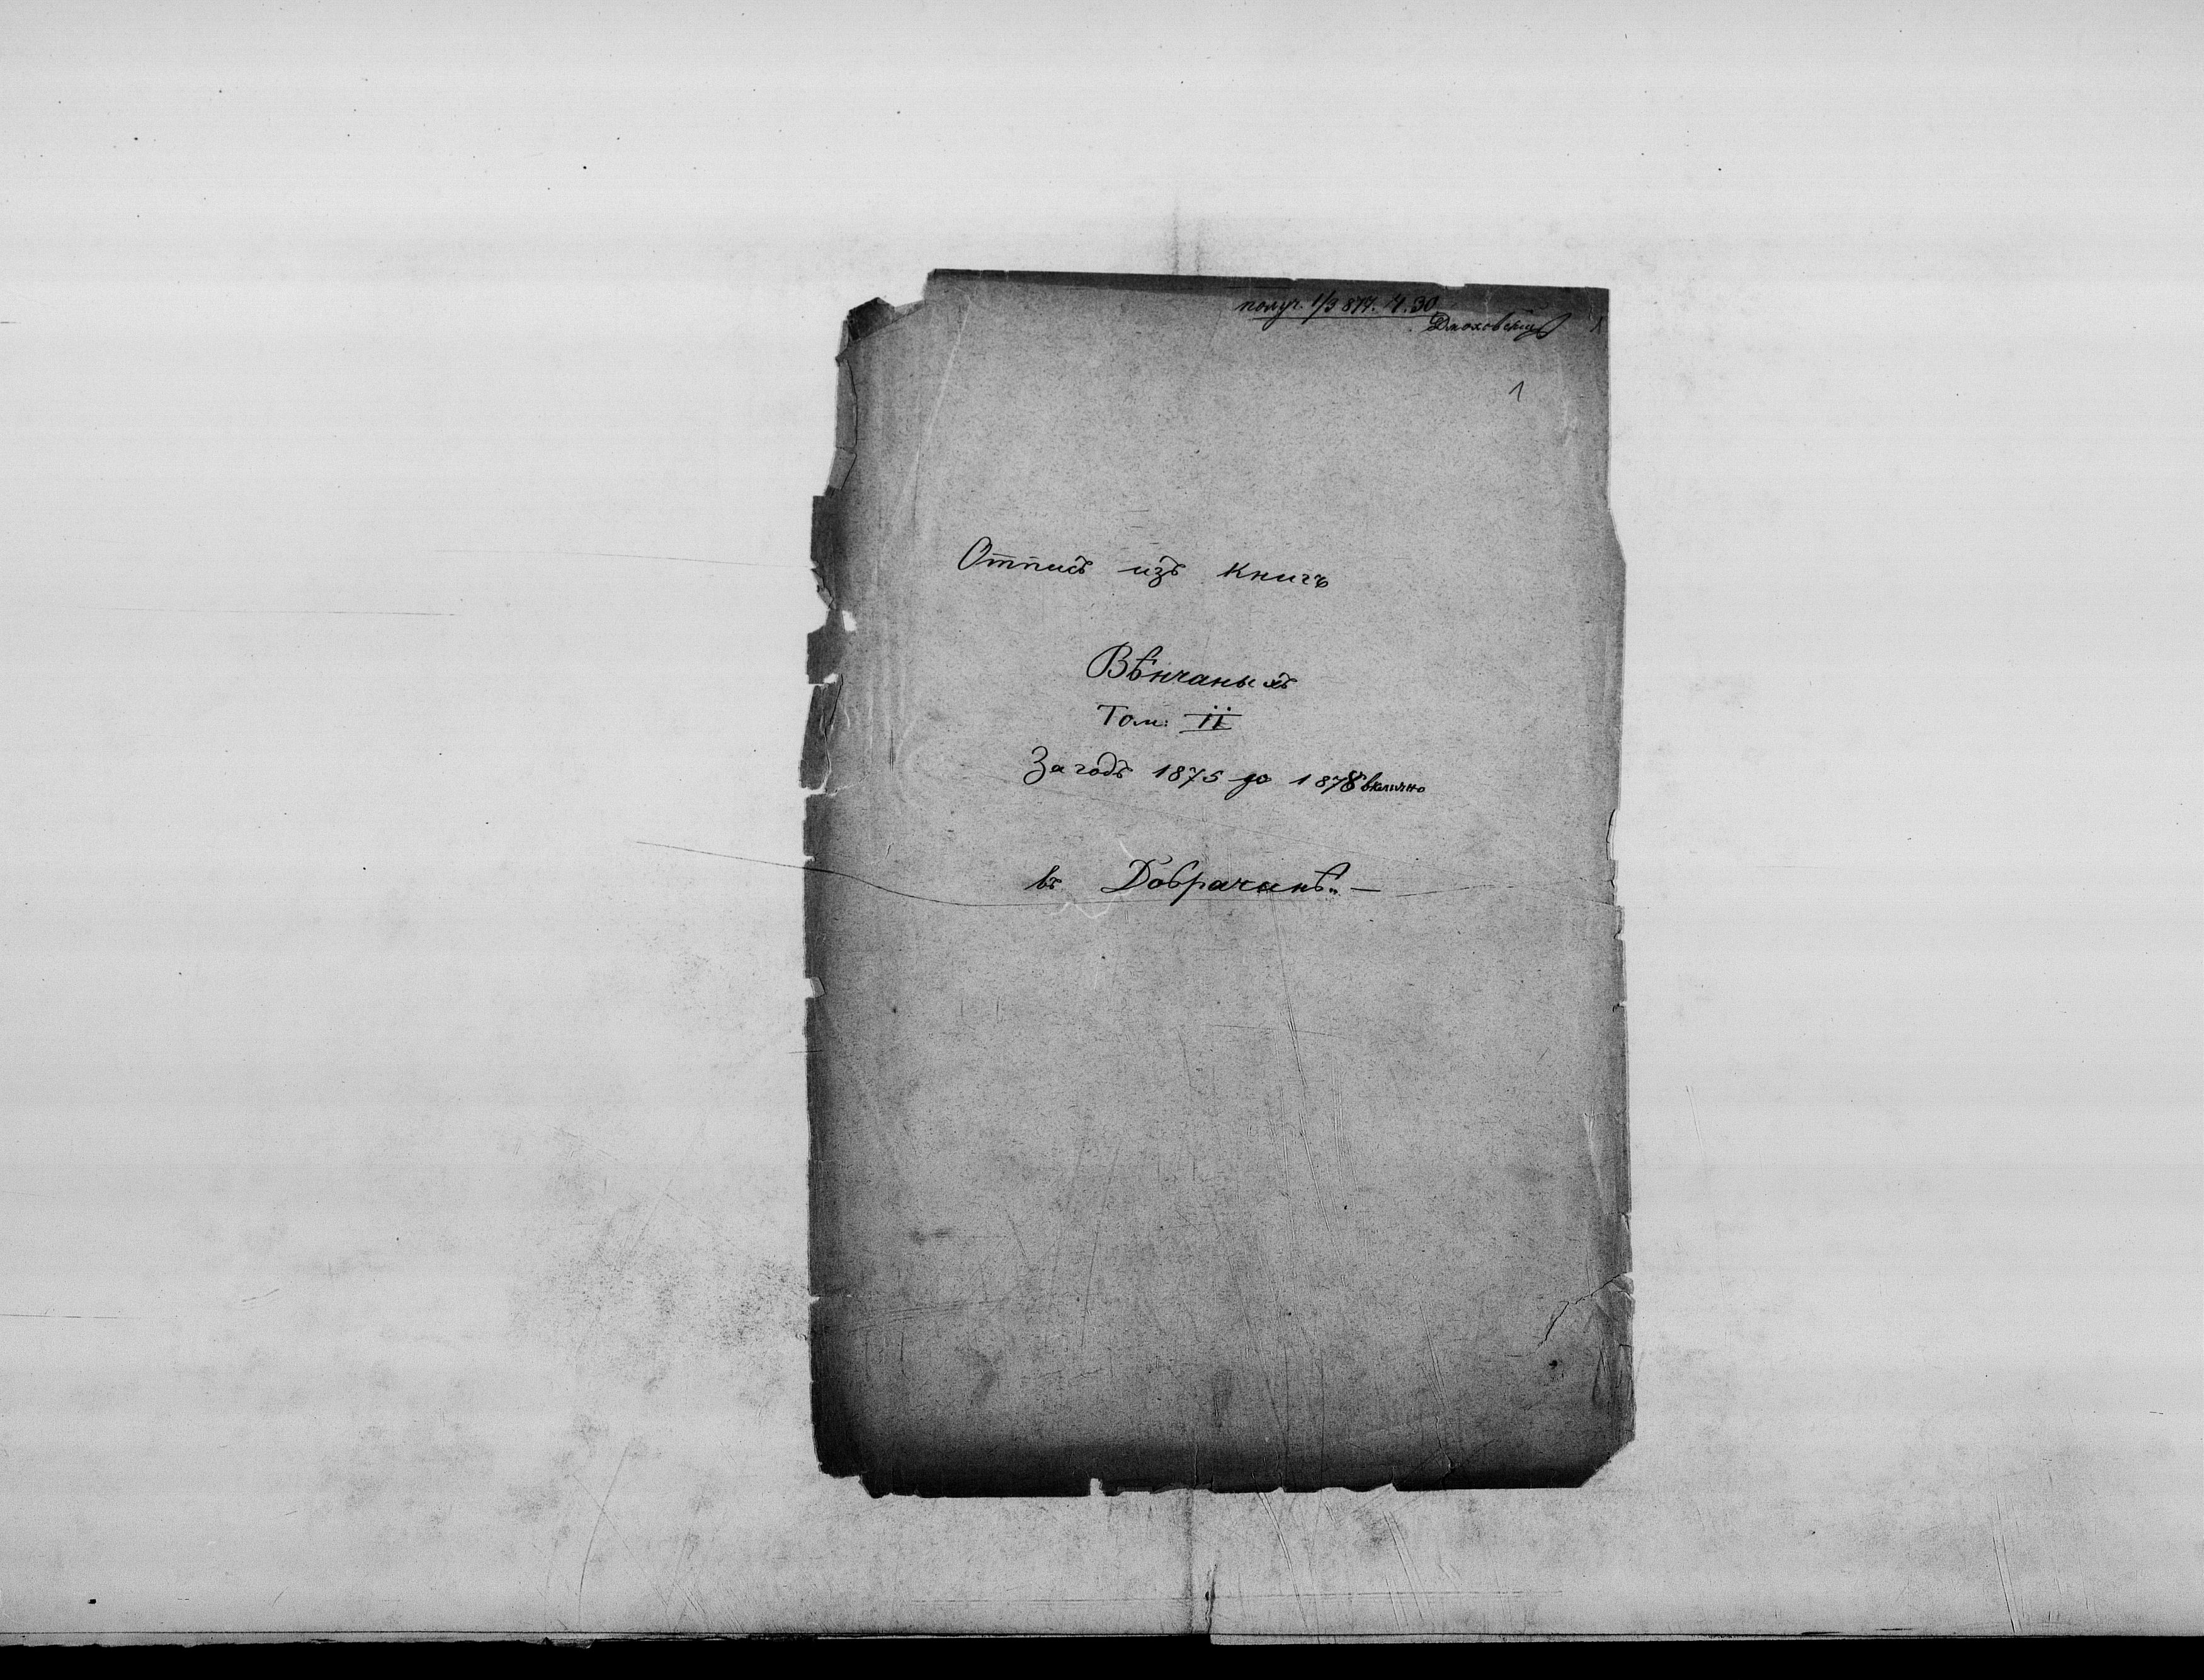 получ. 1/3 877. Ч. 30
Дмоховскій
1
Отписъ изъ книгъ
Вѣнчаныхъ
Том: II
За годъ 1875 до 1878 включно
въ Добрачинѣ. —